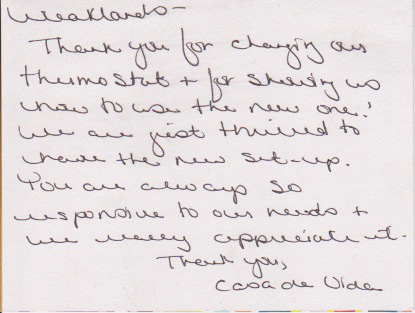 Weaklands -
Thank you for changing our
thermostat + for showing us
how to use the new one!
We are just thrilled to
have the new set-up.
You are always so
responsive to our needs +
we really appreciate it.
Thank you,
Casa de Vida